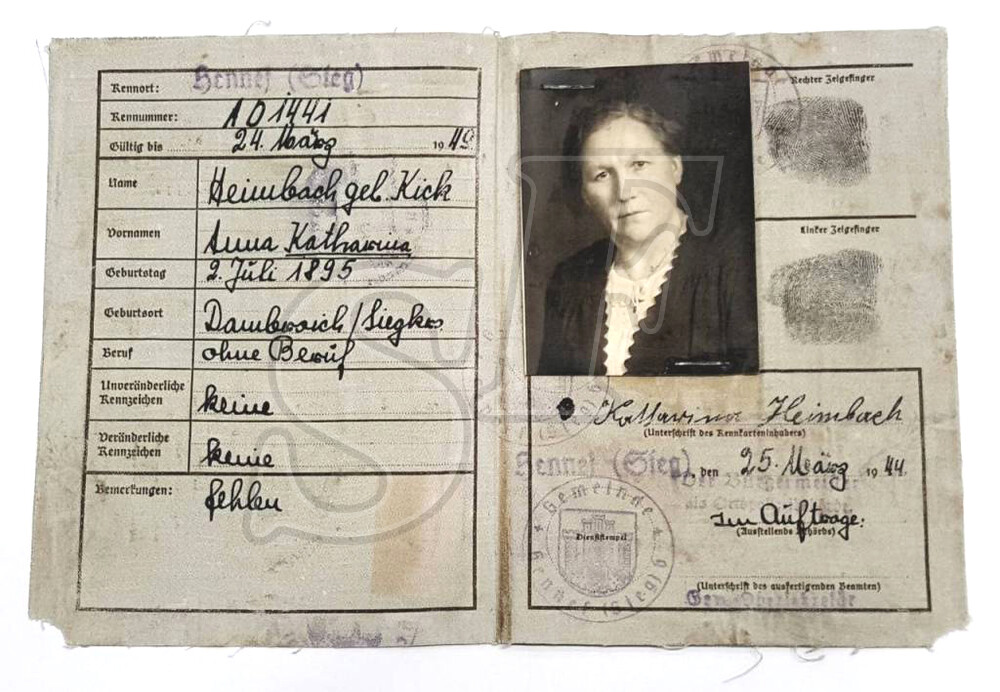 Kennort: Hennef (Sieg)
Kennummer: A 01441
Gültig bis 24. März 1949
Name Heimbach geb. Kick
Vornamen Anna Katharina
Geburtstag 2. Juli 1895
Geburtsort Dambroich/Siegkrs.
Beruf ohne Beruf
Unveränderliche
Kennzeichen keine
Veränderliche
Kennzeichen keine
Bemerkungen: fehlen
Rechter Zeigefinger
Linker Zeigefinger
Katharina Heimbach
(Unterschrift des Kennkarteninhabers)
Hennef (Sieg), den 25. März 1944.
Der Bürgermeister
Im Auftrage:
(Ausstellende Behörde)
Gemeinde
Hennef (Sieg)
Dienststempel
(Unterschrift des ausfertigenden Beamten)